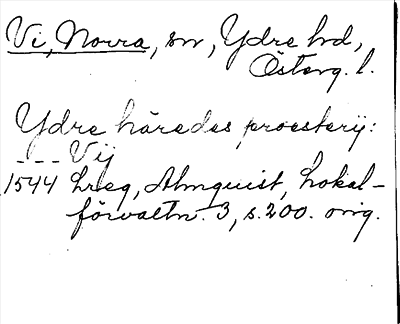 Vi, Norra, sn, Ydre hd,
Österg. l.
Ydre häredes proesterij:
--- Vij
1544 Lreg, Almquist, Lokal-
förvaltn. 3, s. 200. orig.